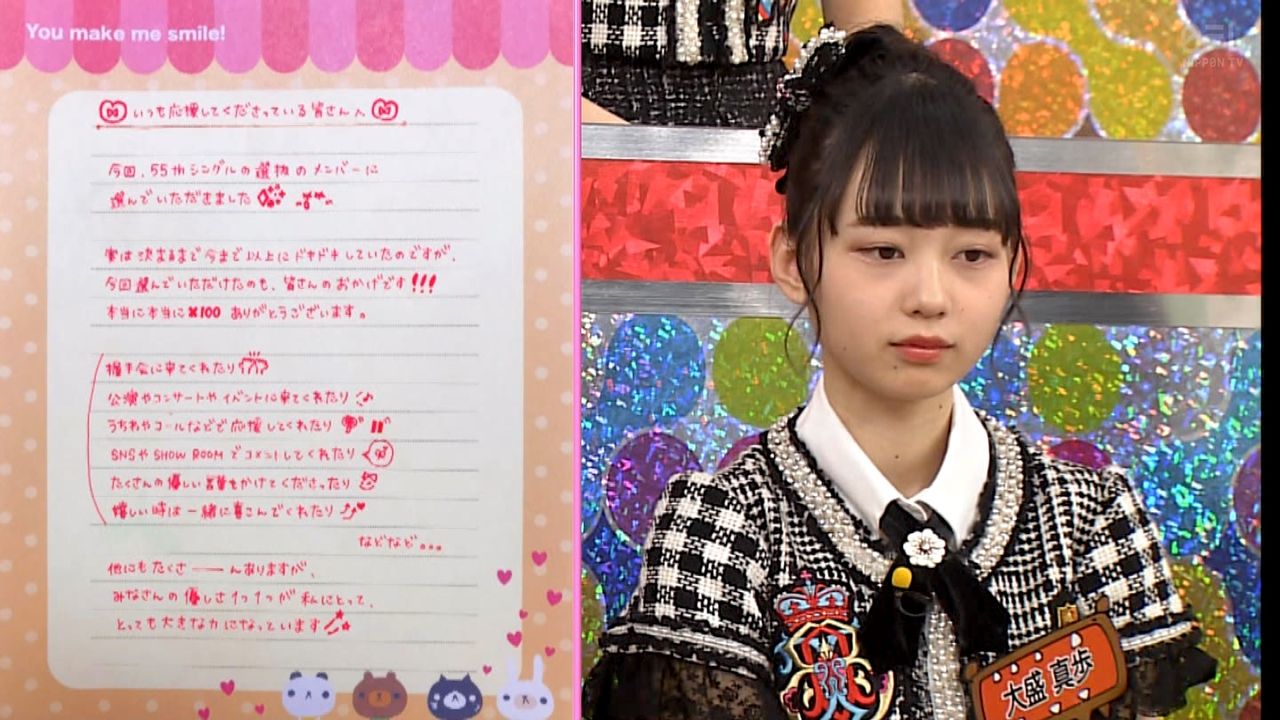 You make me smile!
いつも応援してくださっている皆さんへ
今回、55thシングルの選抜のメンバーに
選んでいただきました
実は決まるまで今まで以上にドキドキしていたのですが、
今回選んでいただけたのも、皆さんのおかげです!!!
本当に本当に×100 ありがとうございます。
握手会に来てくれたり
公演やコンサートやイベントに来てくれたり♪
うちわやコールなどで応援してくれたり
SNSやSHOW ROOMでコメントしてくれたり
たくさんの優しい言葉をかけてくださったり
嬉しい時は一緒に喜こんでくれたり
などなど。。。
他にもたくさ──んありますが、
みなさんの優しさ1つ1つが私にとって、
とっても大きな力になっています
NIPPON TV
大盛 真歩